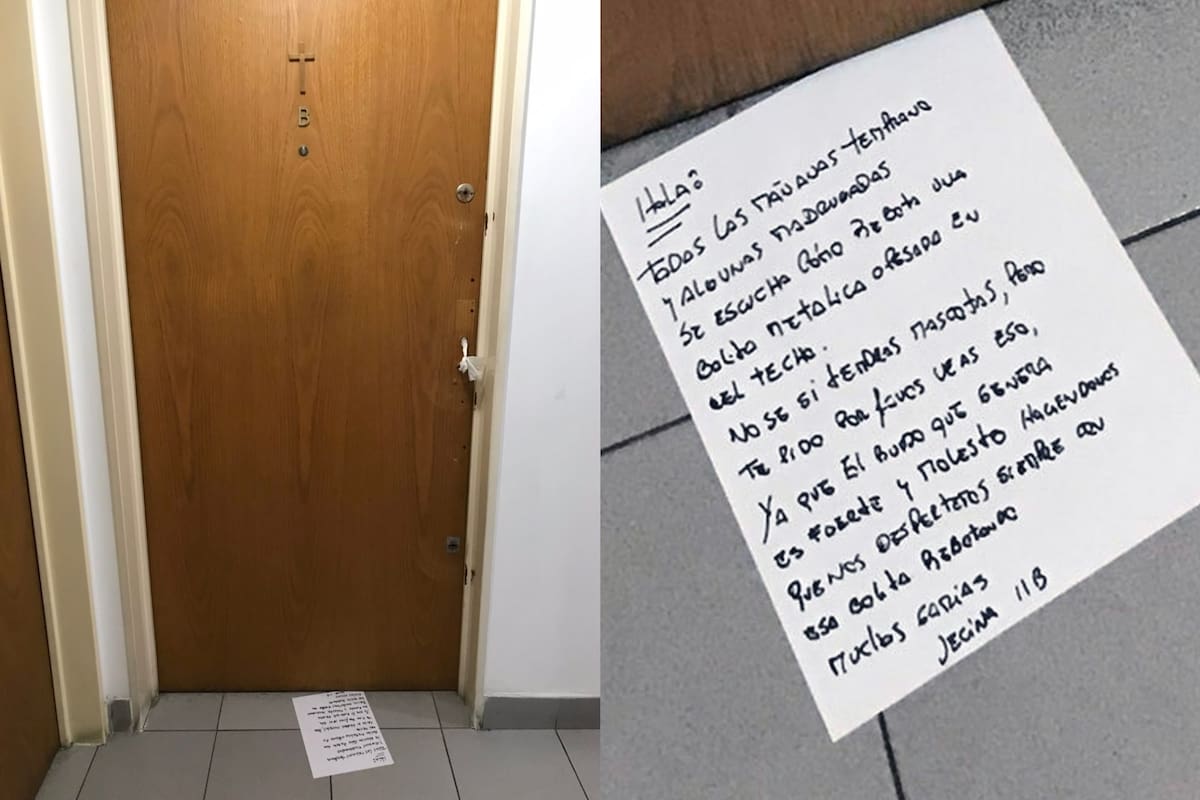 B
HOLA:
TODAS LAS MAÑANAS TEMPRANO
Y ALGUNAS MADRUGADAS
SE ESCUCHA CÓMO REBOTA UNA
BOLITA METALICA O PESADA EN
EL TECHO.
NO SE SI TENDRAS MASCOTAS, PERO
TE PIDO POR FAVOR VEAS ESO,
YA QUE EL RUIDO QUE GENERA
ES FUERTE Y MOLESTO HACIENDONOS
QUE NOS DESPERTEMOS SIEMPRE CON
ESA BOLITA REBOTANDO
MUCHAS GRACIAS
VECINA 11B